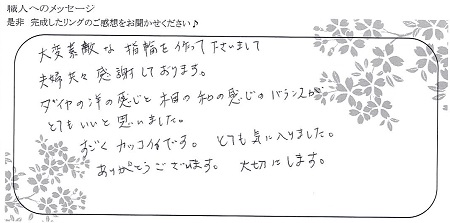 職人へのメッセージ
是非 完成したリングのご感想をお聞かせください♪
大変素敵な指輪を作って下さいまして
夫婦共々感謝しております。
ダイヤの洋の感じと木目の和の感じのバランスが
とてもいいと思いました。
すごくカッコイイです。とても気に入りました。
ありがとうございます。大切にします。